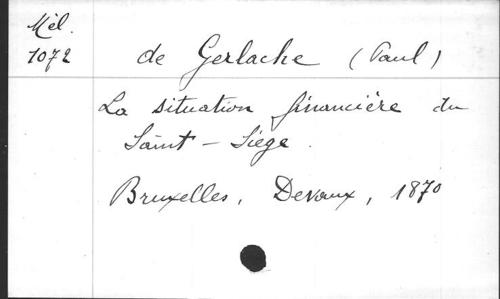 Mél.
1072
de Gerlache (Paul)
La situation financière du
Saint-Siège.
Bruxelles, Devaux, 1870